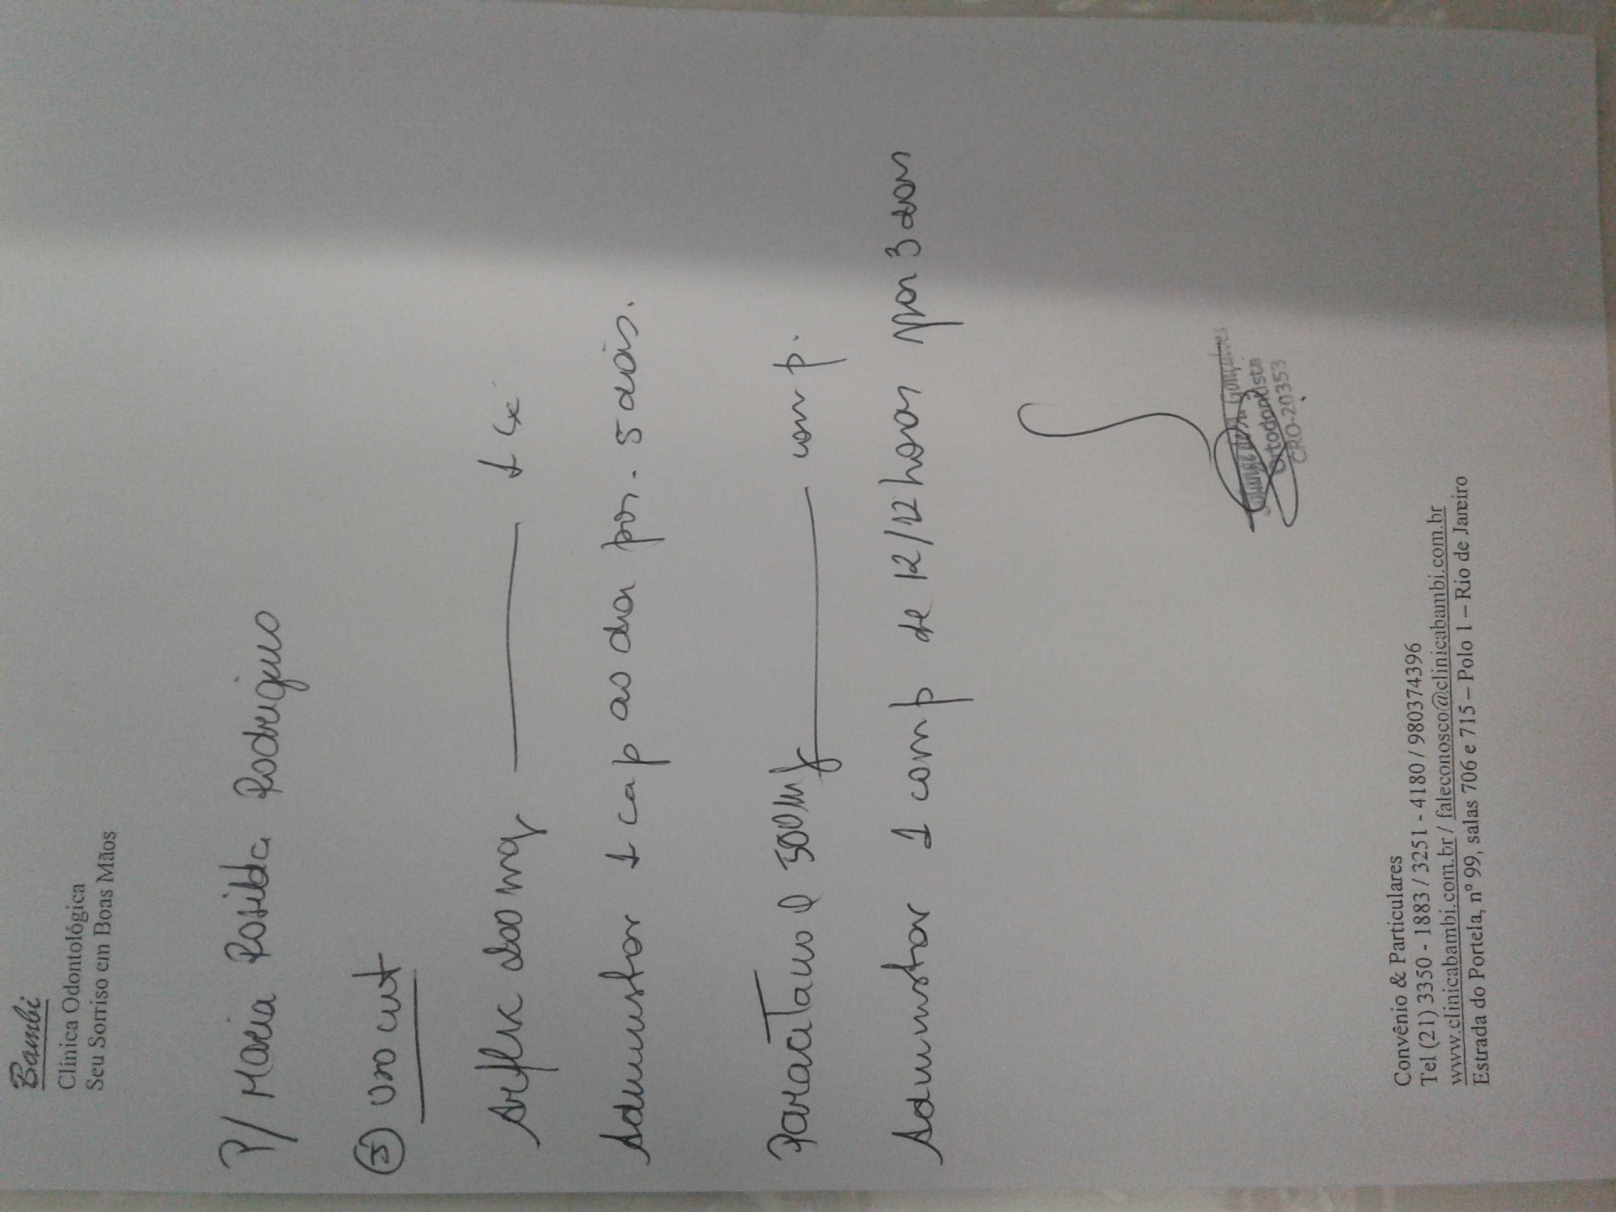 Bambi
Clínica Odontológica
Seu Sorriso em Boas Mãos
P/ Maria Rosilda Rodrigues
uso int
Arflex 200 mg 1 cx
Administrar 1 cap ao dia por 5 dias.
Paracetamol 500mg comp.
Administrar 1 comp de 12/12 horas por 3 dias
Gonçalves
Ortodontista
CRO-20353
Convênio & Particulares
Tel (21) 3350 - 1883 / 3251 - 4180 / 980374396
www.clinicabambi.com.br / faleconosco@clinicabambi.com.br
Estrada do Portela, nº 99, salas 706 e 715 – Polo 1 – Rio de Janeiro